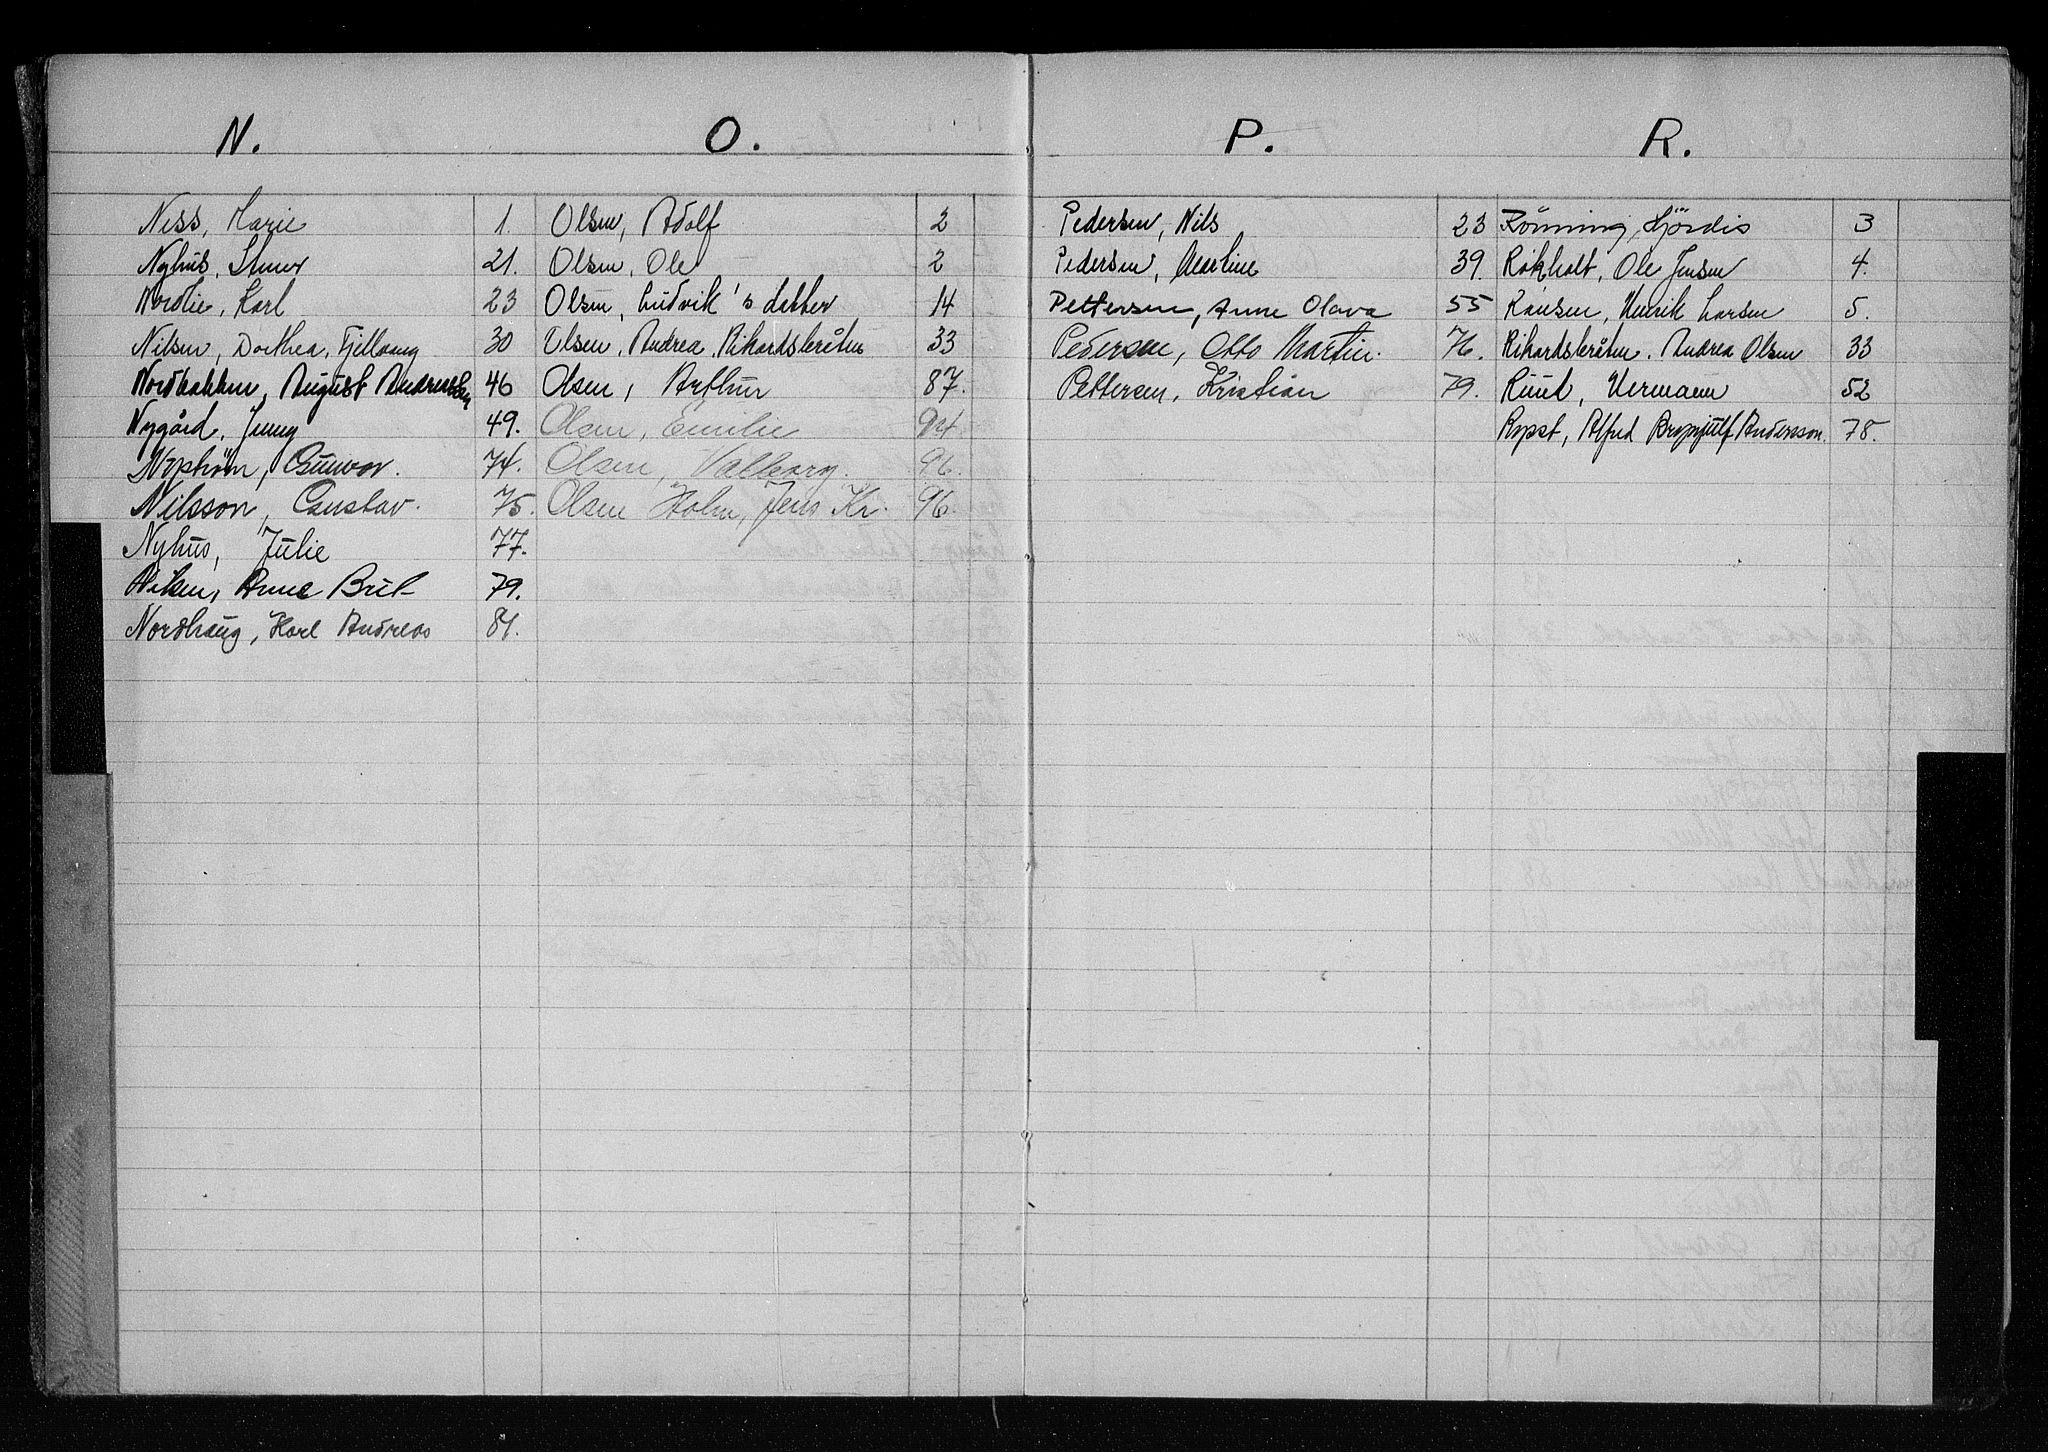 N.
Ness, Marie 1.
Nyhus, Einar 21.
Nordlie, Karl 23
Nilsen, Dorthea, Fjellvang 30
Nordbakken, August Andreassen 46
Nygård, Jenny 49.
Nyström, Gunvor. 74.
Nilsson, Gustav. 75.
Nyhus, Julie 77.
Nilsen, Anne Brit 79.
Nordhaug, Karl Andreas 81.
O.
Olsen, Adolf 2
Olsen, Ole 2
Olsen, Ludvik's datter 14
Olsen, Andrea, Rikardsbråten 33
Olsen, Arthur 87.
Olsen, Emilie 94.
Olsen, Valborg. 96.
Olsen Holm, Jens Kr. 96.
P.
Pedersen, Nils 23
Pedersen, Martine 39.
Pettersen, Anne Olava 55
Pedersen, Otto Martin. 76.
Pettersen, Kristian 79.
R.
Rönning, Hjördis 3
Rökholt, Ole Jensen 4.
Larsen 5.
Rikardsbråten, Andrea Olsen 33
Ruud, Hermann 52
Alfred Andersson. 78.